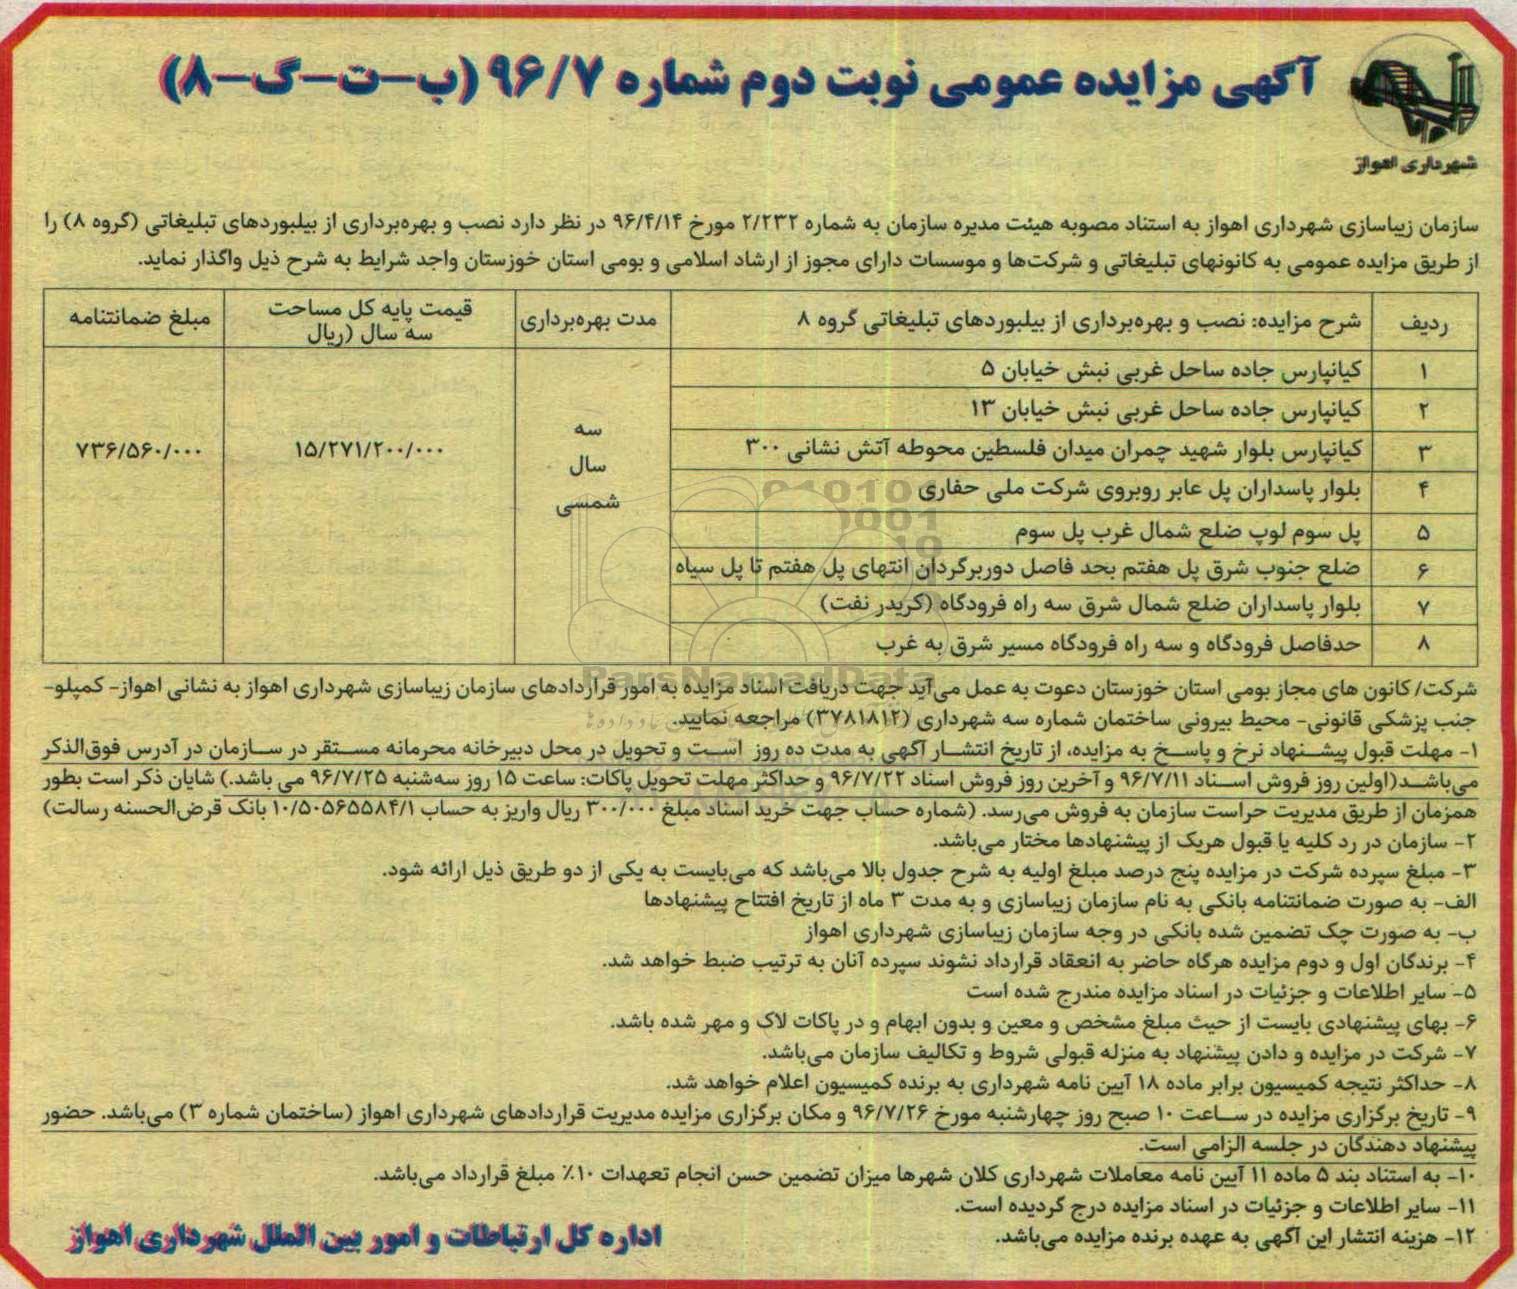 آگهی مزایده عمومی نوبت دوم شماره ۹۶/۷ (ب-ت-گ-۸)
شهرداری اهواز
سازمان زیباسازی شهرداری اهواز به استناد مصوبه هیئت مدیره سازمان به شماره ۲/۲۳۲ مورخ ۹۶/۴/۱۴ در نظر دارد نصب و بهره‌برداری از بیلبوردهای تبلیغاتی (گروه ۸) را
از طریق مزایده عمومی به کانونهای تبلیغاتی و شرکت‌ها و موسسات دارای مجوز از ارشاد اسلامی و بومی استان خوزستان واجد شرایط به شرح ذیل واگذار نماید.
ردیف	شرح مزایده: نصب و بهره‌برداری از بیلبوردهای تبلیغاتی گروه ۸	مدت بهره‌برداری	قیمت پایه کل مساحت سه سال (ریال	مبلغ ضمانتنامه
۱	کیانپارس جاده ساحل غربی نبش خیابان ۵	سه سال شمسی	۱۵/۲۷۱/۲۰۰/۰۰۰	۷۳۶/۵۶۰/۰۰۰
۲	کیانپارس جاده ساحل غربی نبش خیابان ۱۳
۳	کیانپارس بلوار شهید چمران میدان فلسطین محوطه آتش نشانی ۳۰۰
۴	بلوار پاسداران پل عابر روبروی شرکت ملی حفاری
۵	پل سوم لوپ ضلع شمال غرب پل سوم
۶	ضلع جنوب شرق پل هفتم بحد فاصل دوربرگردان انتهای پل هفتم تا پل سیاه
۷	بلوار پاسداران ضلع شمال شرق سه راه فرودگاه (کریدر نفت)
۸	حدفاصل فرودگاه و سه راه فرودگاه مسیر شرق به غرب
ParsNamadData
شرکت/ کانون های مجاز بومی استان خوزستان دعوت به عمل می‌آید جهت دریافت اسناد مزایده به امور قراردادهای سازمان زیباسازی شهرداری اهواز به نشانی اهواز- کمپلو-
جنب پزشکی قانونی- محیط بیرونی ساختمان شماره سه شهرداری (۳۷۸۱۸۱۲) مراجعه نمایید.
۱- مهلت قبول پیشنهاد نرخ و پاسخ به مزایده، از تاریخ انتشار آگهی به مدت ده روز است و تحویل در محل دبیرخانه محرمانه مستقر در سازمان در آدرس فوق‌الذکر
می‌باشد(اولین روز فروش اسناد ۹۶/۷/۱۱ و آخرین روز فروش اسناد ۹۶/۷/۲۲ و حداکثر مهلت تحویل پاکات: ساعت ۱۵ روز سه‌شنبه ۹۶/۷/۲۵ می باشد.) شایان ذکر است بطور
همزمان از طریق مدیریت حراست سازمان به فروش می‌رسد. (شماره حساب جهت خرید اسناد مبلغ ۳۰۰/۰۰۰ ریال واریز به حساب ۱۰/۵۰۵۶۵۵۸۴/۱ بانک قرض‌الحسنه رسالت)
۲- سازمان در رد کلیه یا قبول هریک از پیشنهادها مختار می‌باشد.
۳- مبلغ سپرده شرکت در مزایده پنج درصد مبلغ اولیه به شرح جدول بالا می‌باشد که می‌بایست به یکی از دو طریق ذیل ارائه شود.
الف- به صورت ضمانتنامه بانکی به نام سازمان زیباسازی و به مدت ۳ ماه از تاریخ افتتاح پیشنهادها
ب- به صورت چک تضمین شده بانکی در وجه سازمان زیباسازی شهرداری اهواز
۴- برندگان اول و دوم مزایده هرگاه حاضر به انعقاد قرارداد نشوند سپرده آنان به ترتیب ضبط خواهد شد.
۵- سایر اطلاعات و جزئیات در اسناد مزایده مندرج شده است
۶- بهای پیشنهادی بایست از حیث مبلغ مشخص و معین و بدون ابهام و در پاکات لاک و مهر شده باشد.
۷- شرکت در مزایده و دادن پیشنهاد به منزله قبولی شروط و تکالیف سازمان می‌باشد.
۸- حداکثر نتیجه کمیسیون برابر ماده ۱۸ آیین نامه شهرداری به برنده کمیسیون اعلام خواهد شد.
۹- تاریخ برگزاری مزایده در ساعت ۱۰ صبح روز چهارشنبه مورخ ۹۶/۷/۲۶ و مکان برگزاری مزایده مدیریت قراردادهای شهرداری اهواز (ساختمان شماره ۳) می‌باشد. حضور
پیشنهاد دهندگان در جلسه الزامی است.
۱۰- به استناد بند ۵ ماده ۱۱ آیین نامه معاملات شهرداری کلان شهرها میزان تضمین حسن انجام تعهدات ۱۰٪ مبلغ قرارداد می‌باشد.
۱۱- سایر اطلاعات و جزئیات در اسناد مزایده درج گردیده است.
۱۲- هزینه انتشار این آگهی به عهده برنده مزایده می‌باشد.
اداره کل ارتباطات و امور بین الملل شهرداری اهواز